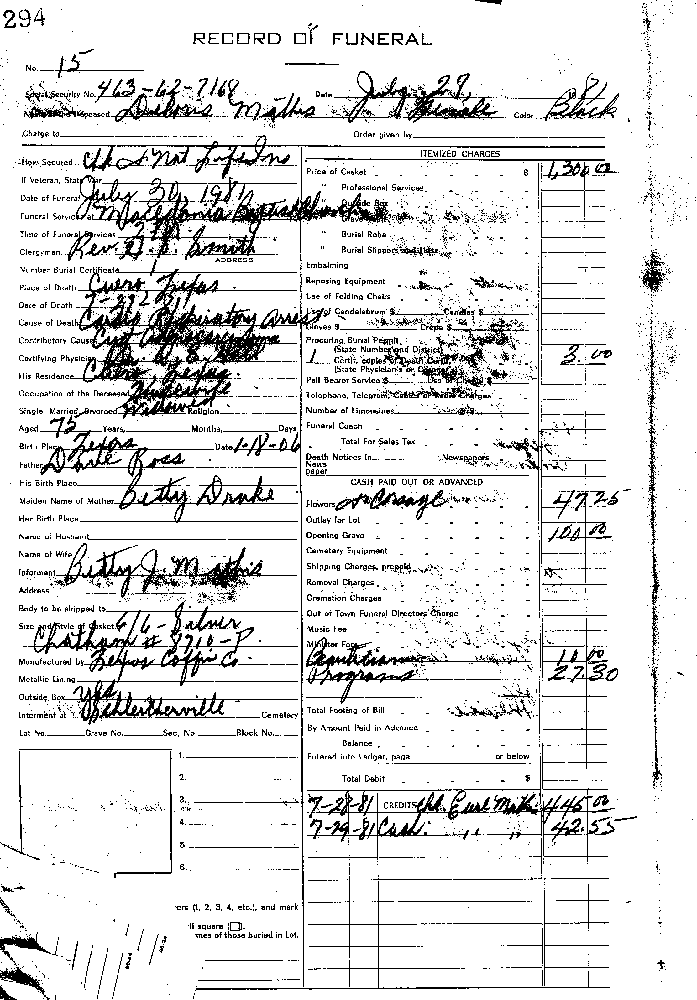 294
RECORD OF FUNERAL
No. 15
Social Security No. 463-62-7168 Date July 29, 1981
Deloris Mathis Female Color Black
Charge to Order given by
How Secured Chk & Nat Life Ins
If Veteran, State War
Date of Funeral July 30, 1981
Funeral Services at Macedonia Baptist Church
Time of Funeral Services 2 PM
Clergyman Rev. Smith
ADDRESS
Number Burial Certificate
Place of Death Cuero Texas
Date of Death
Cause of Death Cardio Respiratory Arrest
Contributory Cause
Certifying Physician
His Residence Cuero Texas
Occupation of the Deceased Housewife
Single Married Divorced Widowed Religion
Aged 75 Years, Months, Days
Birth Place Texas Date 1-18-06
Father Ross
His Birth Place
Maiden Name of Mother Betty Drake
Her Birth Place
Name of Husband
Name of Wife
Informant Betty J. Mathis
Address
Body to be shipped to
Size and Style of Casket 6/6 - Silver
Chatham # 9710-P
Manufactured by Texas Coffin Co.
Metallic Lining
Outside Box yes
Interment at Cemetery
Lot No. Grave No. Sec. No. Block No.
1.
2.
3.
4.
5.
6.
ers (1, 2, 3, 4, etc.), and mark
ill square
mes of those buried in Lot.
ITEMIZED CHARGES
Price of Casket $ 1,300.00
" Professional Services
" Outside Box
" Burial Robe
" Burial Slippers and Hose
Embalming
Reposing Equipment
Use of Folding Chairs
of Candelabrum $ Candles $
Gloves $ Crepe $
Procuring Burial Permit
(State Number and District)
1 Certif. copies of Death Certif. 3.00
(State Physician's or Coroner's)
Pall Bearer Service $ Use of $
Telephone, Telegram, Cables or Radio Charges
Number of Limousines
Funeral Coach
Total For Sales Tax
Death Notices In Newspapers
News
paper
CASH PAID OUT OR ADVANCED
Flowers Corsage 47.25
Outlay for Lot
Opening Grave 100.00
Cemetery Equipment
Shipping Charges, prepaid
Removal Charges
Cremation Charges
Out of Town Funeral Directors Charge
Music Fee
Minister Fee
Beautician 10.00
Programs 27.30
Total Footing of Bill
By Amount Paid in Advance
Balance
Entered into Ledger, page or below
Total Debit $
7-28-81 CREDITS Chk. Earl Math. 445.00
7-29-81 Cash: " " 42.55